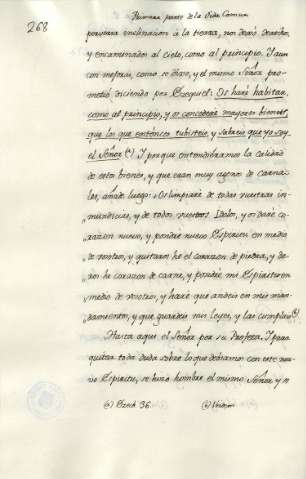 268
Primera parte de la Vida Comun
primera inclinacion á la tierra, nos dexó derecho,
y encaminados al cielo, como al principio. Y aun
con mejoría, como se dixo, y el mismo Señor pro-
metió diciendo por Ezequiel: Os haré habitar,
como al principio, y os concederé mayores bienes,
que los que entónces tubisteis, y sabréis que yo soy
el Señor (a). Y porque entendiesemos la calidad
de estos bienes, y que eran muy agenos de carna-
les, añade luego: Os limpiaré de todas vuestras in-
mundicias, y de todos vuestros Idolos, y os daré co-
razon nuevo, y pondré nuevo Espiritu en medio
de vosotros, y quitaros he el corazon de piedra, y da-
ros he corazon de carne, y pondré mi Espiritu en
medio de vosotros, y haré que andeis en mis man-
damientos, y que guardeis mis leyes, y las cumplais (b).
Hasta aqui el Señor por su Profeta. Y para
quitar toda duda sobre lo que debiamos con este nue-
vo Espiritu, se hizo hombre el mismo Señor, y n
(a) Ezech 36. (b) Ibidem